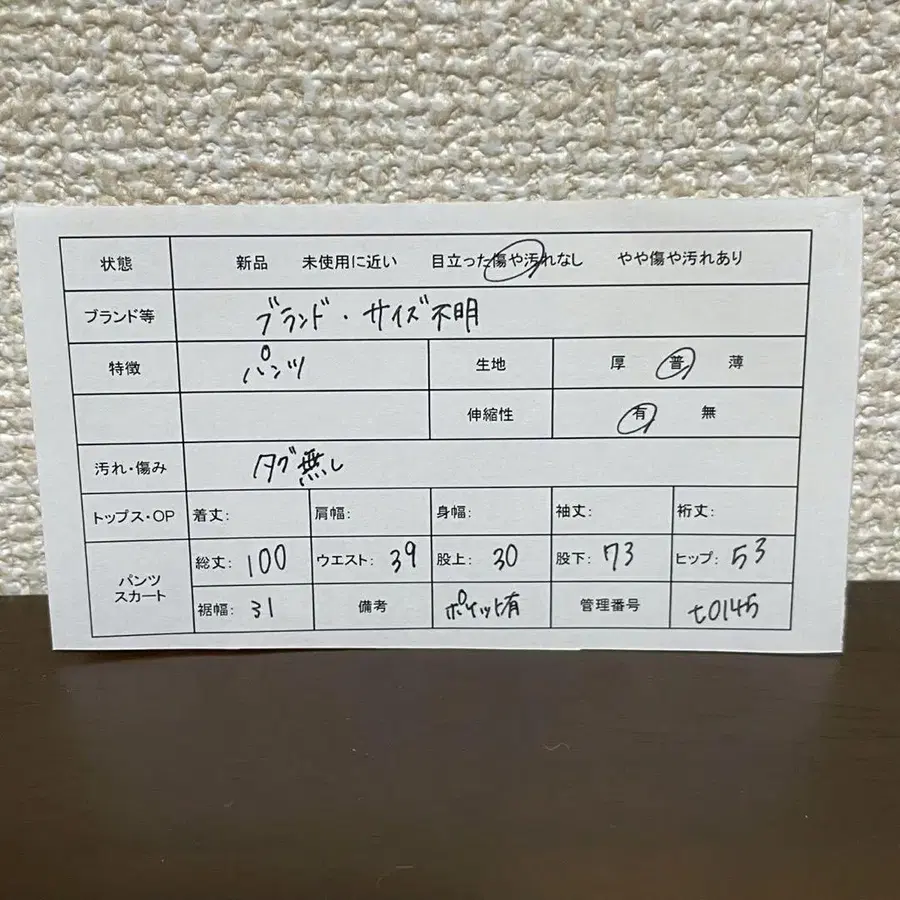 状態 新品 未使用に近い 目立った傷や汚れなし やや傷や汚れあり
ブランド等 ブランド・サイズ不明
特徴 パンツ 生地 厚 普 薄
伸縮性 有 無
汚れ・傷み タグ無し
トップス・OP 着丈: 肩幅: 身幅: 袖丈: 裄丈:
パンツ スカート 総丈: 100 ウエスト: 39 股上: 30 股下: 73 ヒップ: 53
裾幅: 31 備考 ポケット有 管理番号 t0145